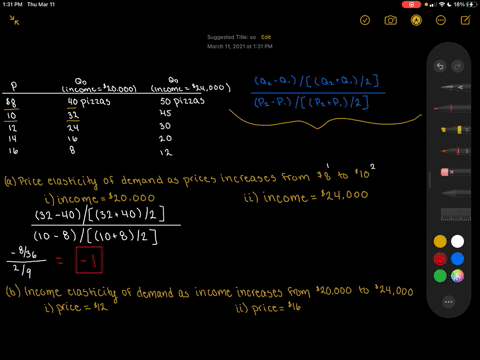 1:31 PM Thu Mar 11
Suggested Title: so Edit
March 11, 2021 at 1:31 PM
P QD QD
(income = $20,000) (income = $24,000)
$8 40 pizzas 50 pizzas
10 32 45
12 24 30
14 16 20
16 8 12
(Q2 - Q1) / [(Q2 + Q1) / 2]
(P2 - P1) / [(P2 + P1) / 2]
(a) Price elasticity of demand as prices increases from $8 1 to $10 2
i) income = $20,000 ii) income = $24,000
(32 - 40) / [(32 + 40) / 2]
(10 - 8) / [(10 + 8) / 2]
-8/36
2/9 = -1
(b) Income elasticity of demand as income increases from $20,000 to $24,000
i) price = $12 ii) price = $16